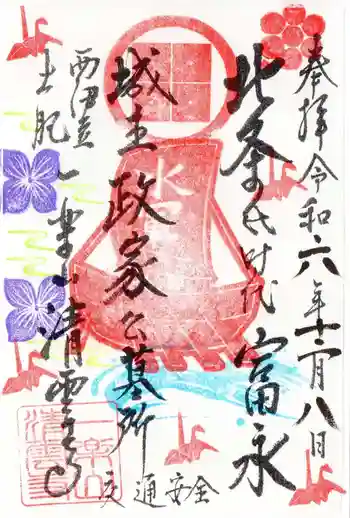 奉拝 令和六年十二月八日
北条氏時代 富永
城主政家公墓所
西伊豆
土肥 一楽山清雲寺
交通安全